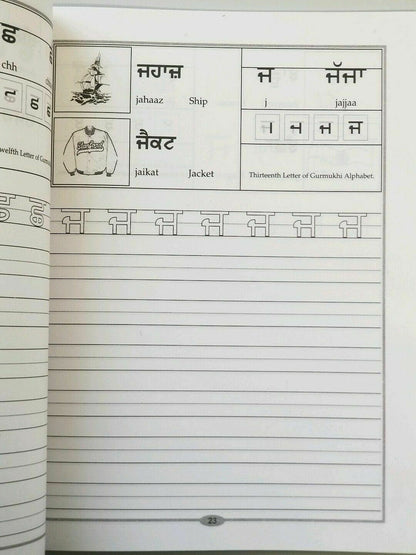 ਛ
chh
welfth Letter of Gurmu
ਜਹਾਜ਼
jahaaz Ship
ਜ ਜੱਜਾ
j jajjaa
ਜੈਕਟ
jaikat Jacket
Thirteenth Letter of Gurmukhi Alphabet.
ਛ ਜ ਜ ਜ ਜ ਜ ਜ ਜ
23